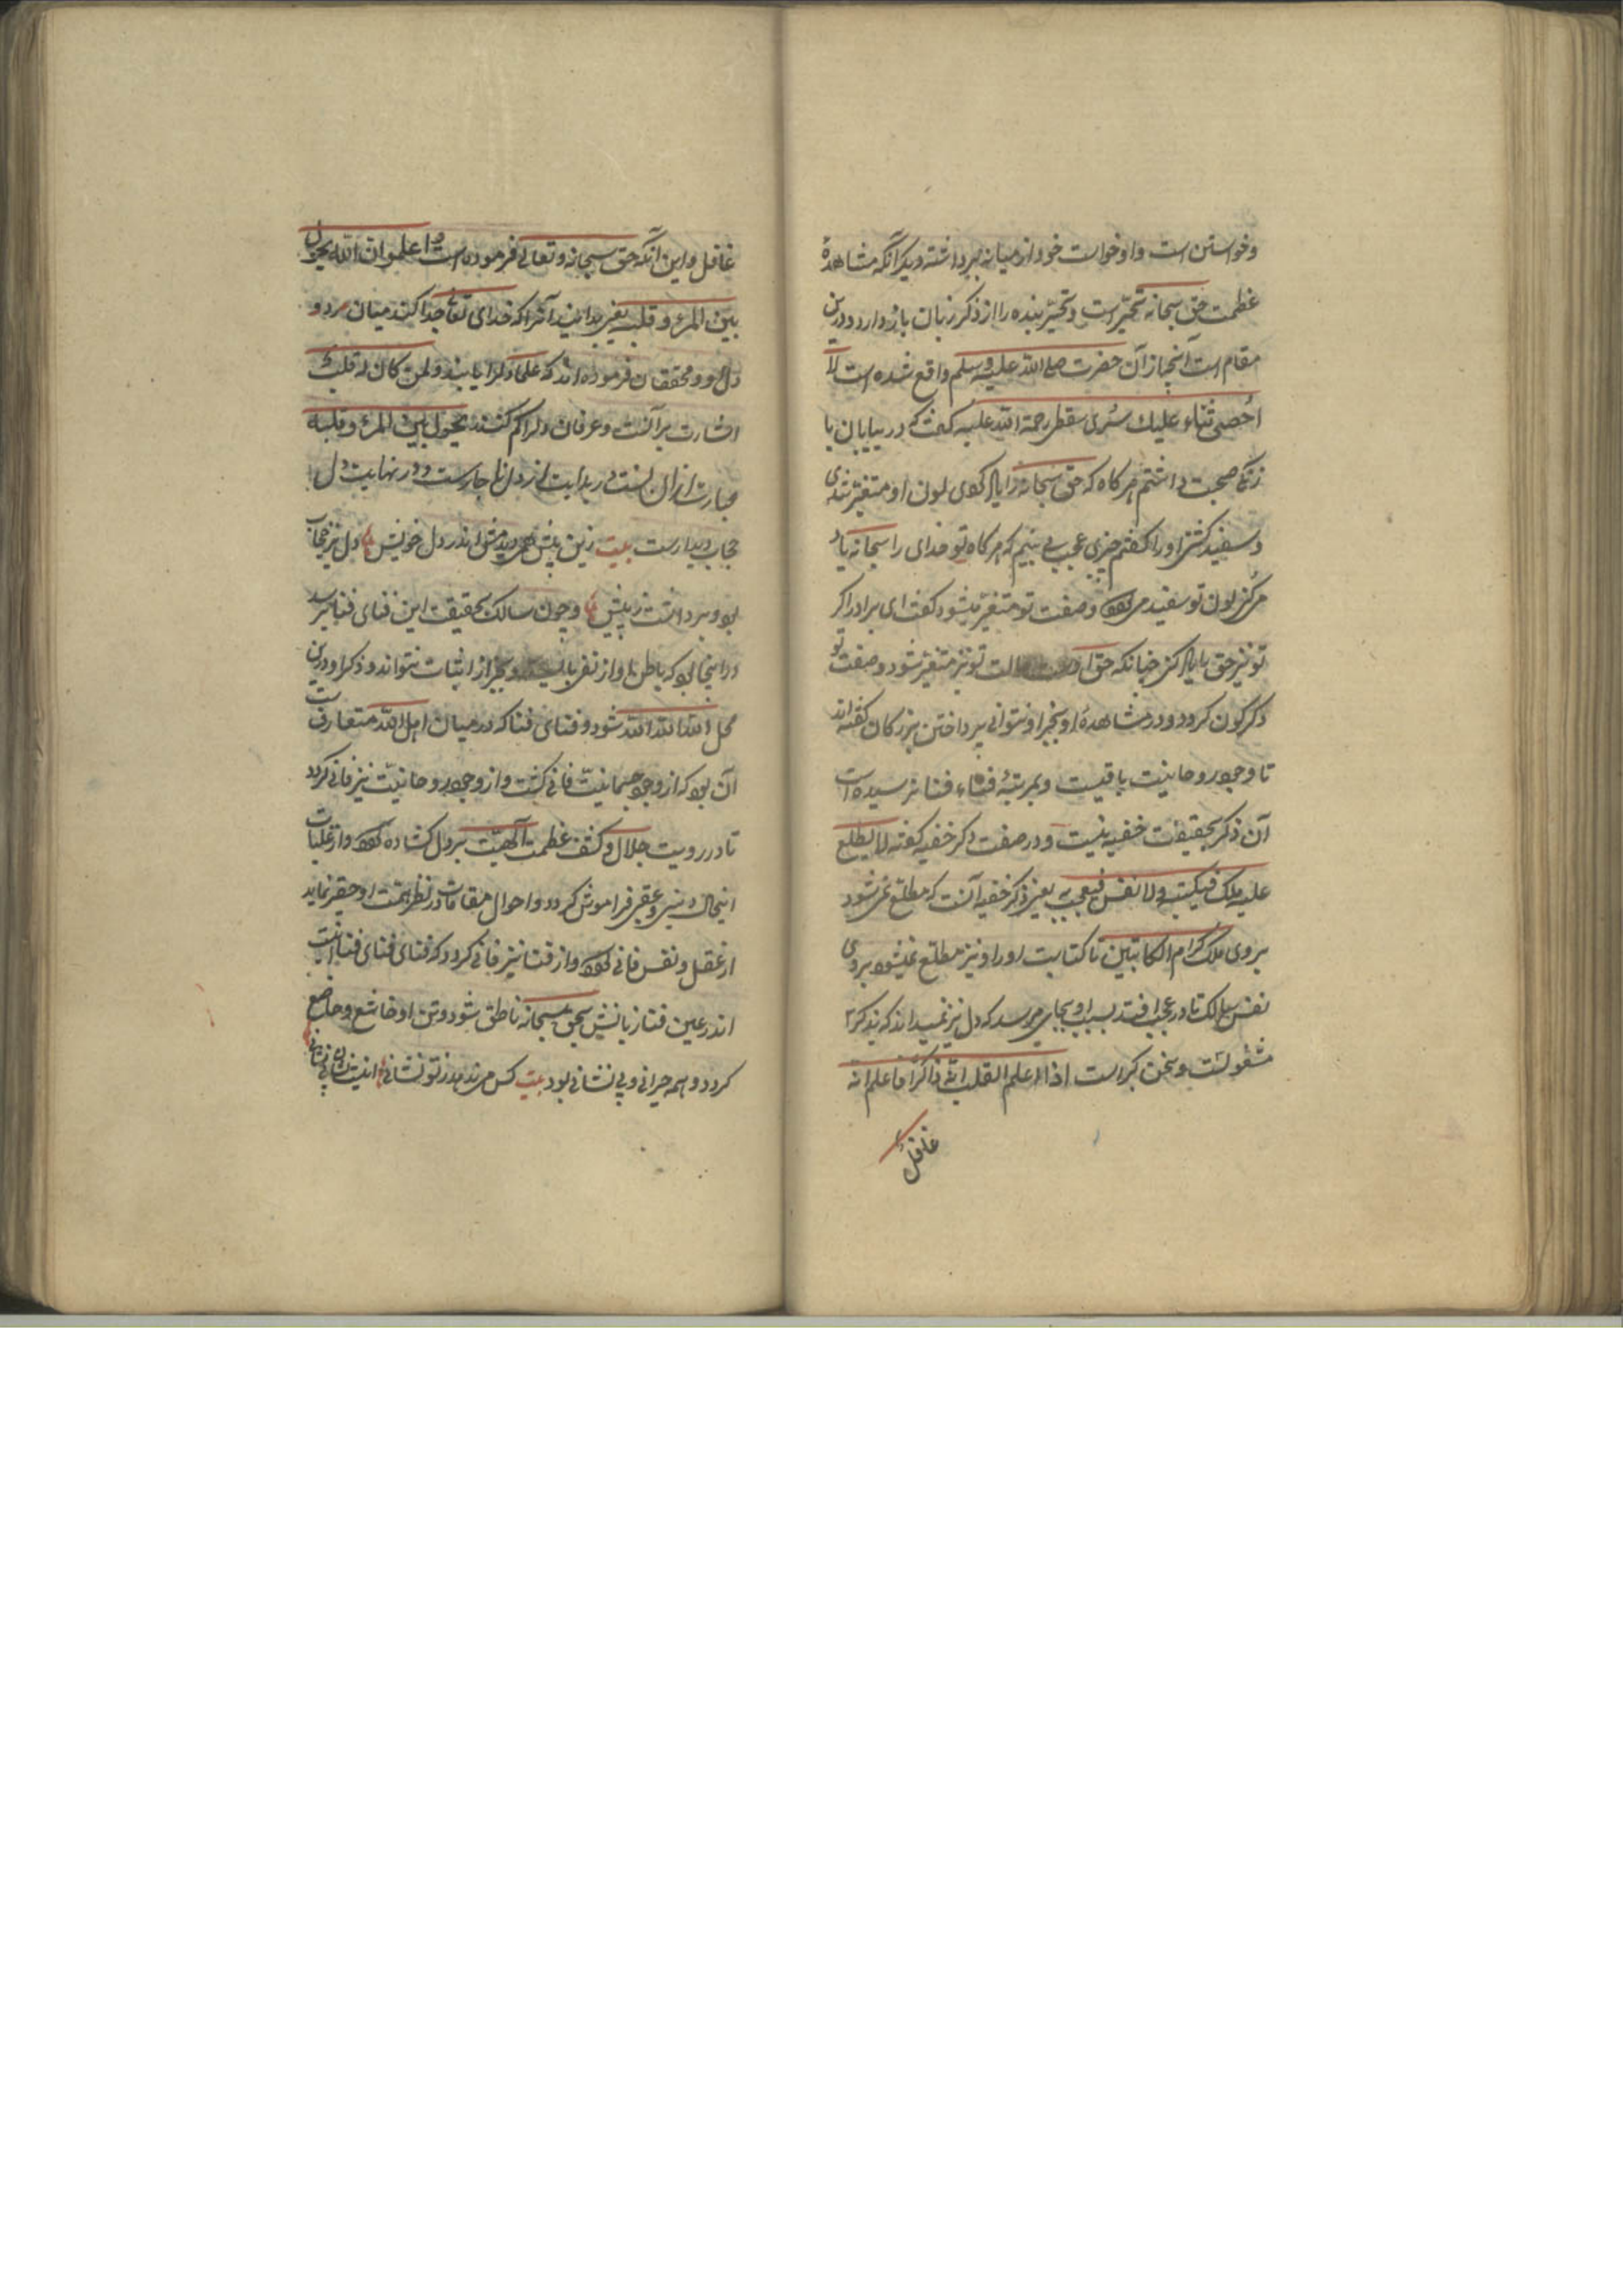 وخواستن است واو خواست خود از میانه برداشته دیگر آنکه مشاهدهٔ
عظمت حق سبحانه تحیّر است وتحیّر بنده را از ذکر زبان باز دارد ودرین
مقام است آنچه از آن حضرت صلی الله علیه وسلم واقع شده است لا
اُحصی ثناء علیك سُری سقطی رحمة الله علیه گفت که در بیابان با
زنگی صحبت داشتم هر کاه که حق سبحانه را یاد کردی لون او متغیّر شدی
وسفید کشتی اورا کفتم چیزی عجب می بینیم که هر کاه تو خدای را سبحانه یاد
میکنی لون تو سفید می وصفت تو متغیّر میشود کفت ای برادر اکر
تو نیز حق یاد کنی چنانکه حق حالت تو نیز متغیّر شود وصفت تو
دکرکون کردد ودر مشاهدهٔ او بخیر او نتوانی پرداختن بزرکان کفته اند
تا وجود روحانیت باقیست وبمرتبهٔ فناء فنا نرسیده است
آن ذکر بحقیقت خفیه نیست ودر صفت ذکر خفیه کفته لا یطلع
علیه ملك فیکتب ولا نفس فیعجب به یعنی ذکر خفیه آنست که مطلع نمی شود
بروی ملك کرام الکاتبین تا کتابت او را ونیز مطلع نمیشود بروی
نفس سالك تا در عجب افتد بسبب او بجایی میرسد که دل نیز نمیداند که بذکر
مشغولست وسخن کبراست اذا علم القلب انه ذاکر فاعلم انه
غافل
غافل واین آنکه حق سبحانه وتعالی فرموده است واعلموا ان الله یحول
بین المرء وقلبه یعنی بدانید آنرا که خدای تعالی جدا کند میان مرد و
دل او ومحققان فرموده اند که علما دلرا یابند ولمن کان له قلب
اشارت برآنست وعرفان دلرا کم کنند یحول بین المرء وقلبه
عبارت از آن است در بدایت از دل ناچارست ودر نهایت دل
حجاب دیدارست بیت زین پیش دیدمش اندر دل خویش دل نیز حجاب
بود برداشت ز پیش وچون سالك بحقیقت این فنای فنا برسد
در اینحال بود که باطن او از نفی وبجز از اثبات نتواند وذکر او درین
محل الله الله الله شود وفنای فنا که در میان اهل الله متعارفست
آن بود که از وجود جسمانیّت فانی کشت واز وجود روحانیّت نیز فانی کردد
تا در رویت جلال وکشف عظمت الهیّت بر دل کشاده واز غلبات
اینحال دنیی وعقبی فراموش کردد واحوال مقامات در نظر همّت او حقیر نماید
از عقل ونفس فانی واز فنا نیز فانی کردد که فنای فنای فنا اینست
اندر عین فنا زبانش بحق سبحانه ناطق شود وتن او خاشع وخاضع
کردد وهمه حیرانی وبی نشانی بود بیت کس می ندهد ز تو نشانی اینست نشان بی نشانی